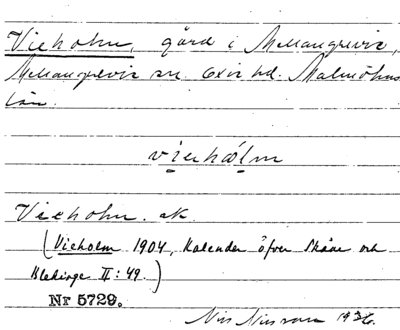 Vieholm, gård i Mellangrevie,
Mellangrevie sn. Oxie hd. Malmöhus
län.
vierhålm
Vieholm. ak.
(Vieholm 1904, Kalender öfver Skåne och
Blekinge II:49.)
Nr 5729.
Nils Nilsson 1936.